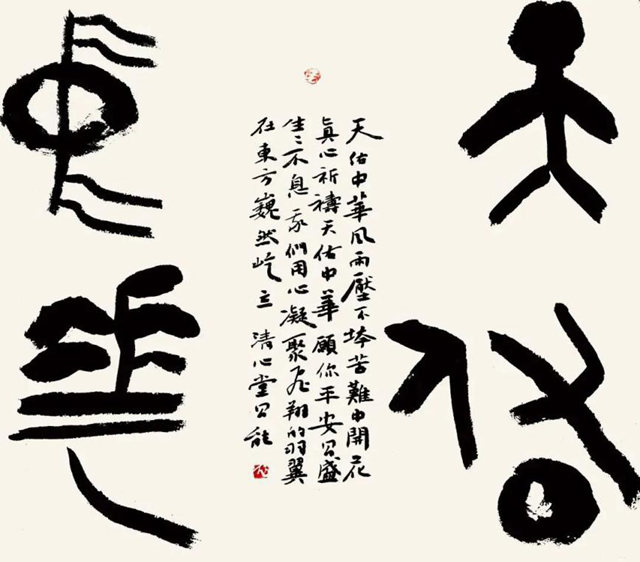 天佑
中華
天佑中華风雨壓不垮苦難中開花
真心祈禱天佑中華願你平安昌盛
生々不息我們用心凝聚飛翔的羽翼
在東方巍然屹立 清心堂